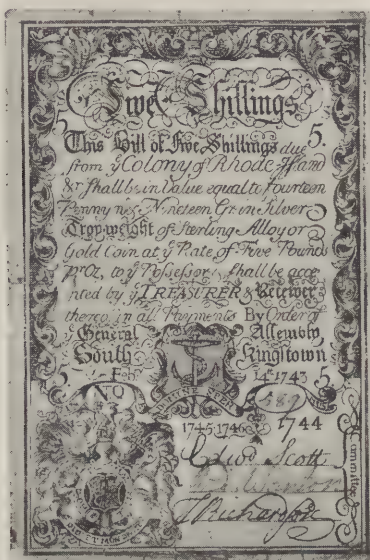 Five Shillings
This Bill of Five Shillings due 5.
from yͤ Colony of Rhode Island
&c shall be in Value equal to fourteen
Penny ... Nineteen Grs in Silver
Troy weight of Sterling Alloy or
Gold Coin at yͤ Rate of Five Pounds
pr Oz, to yͤ Possessor & shall be acce
pted by yͤ TREASURER & Receivers
thereof in all Payments By Order of
General Assembly
South Kingstown
5 14 1743 5
NO 589
1745 1746 1744
Edwd Scott
T Richardson
Committee